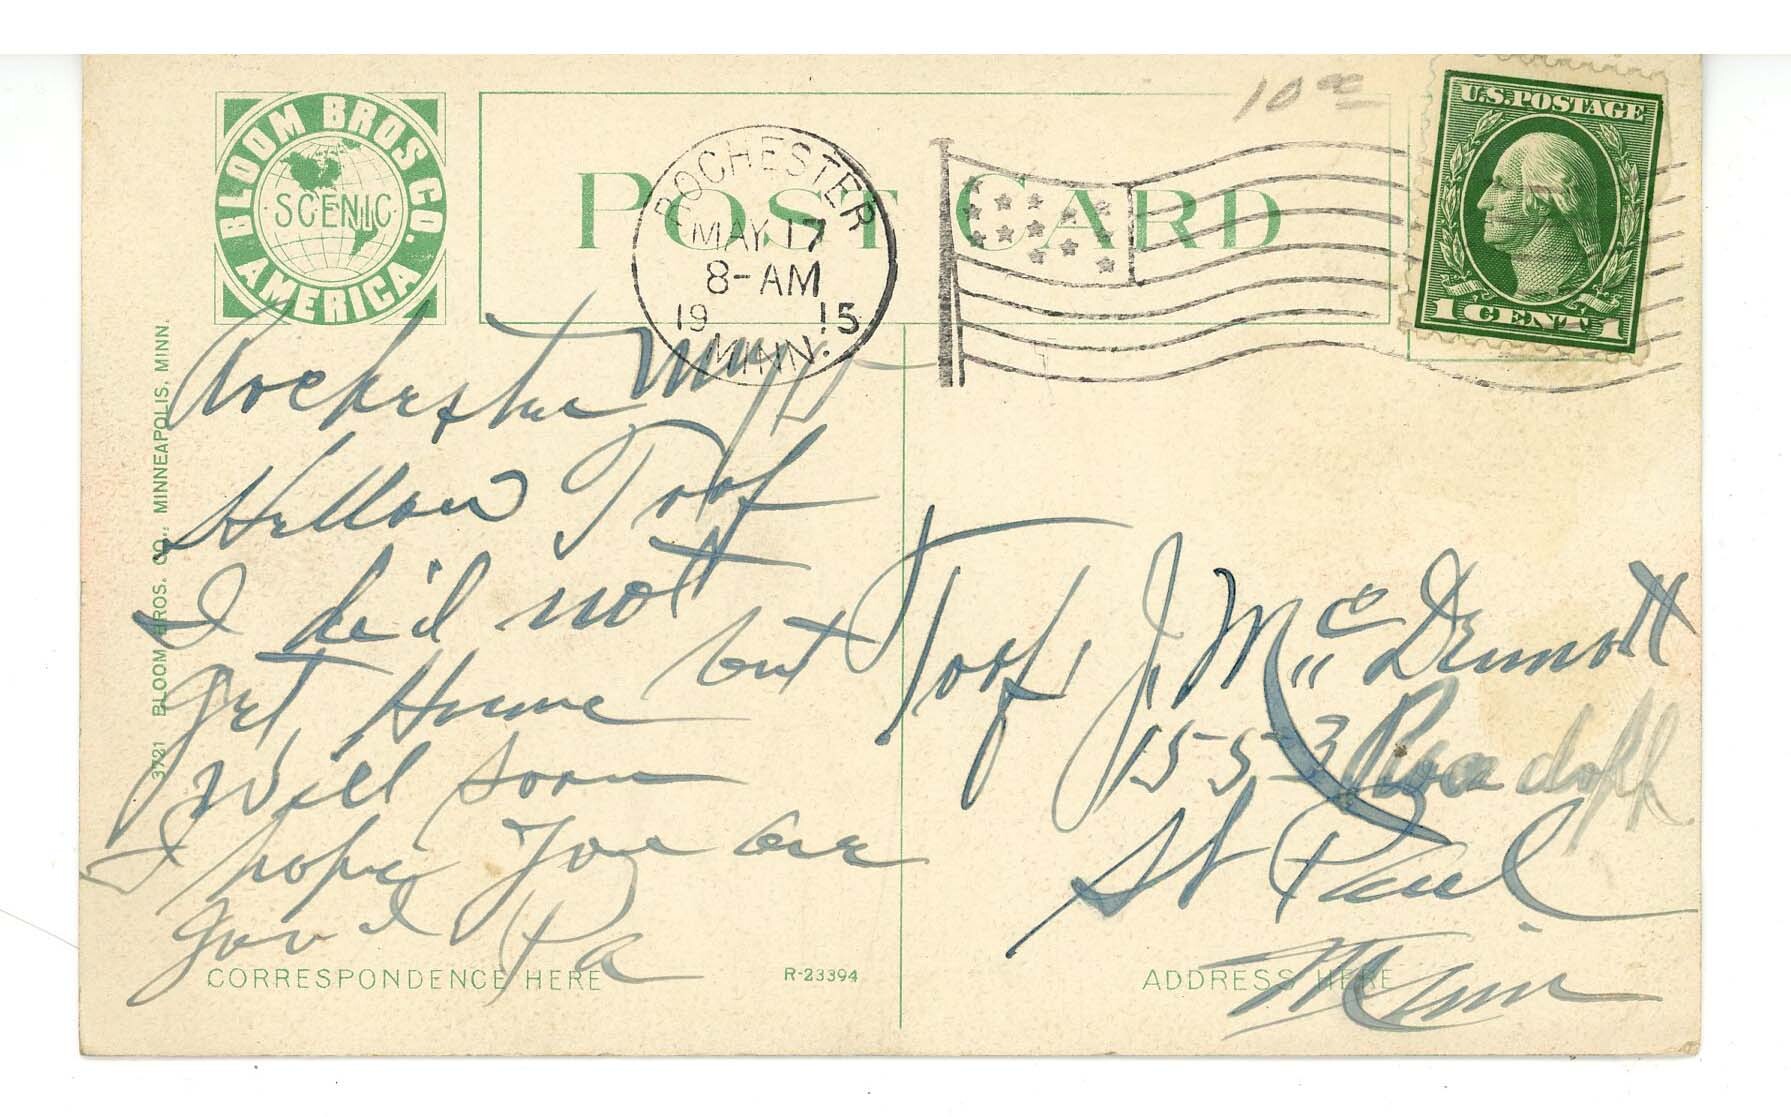 10 00
BLOOM BROS. CO.
SCENIC
AMERICA
POST CARD
ROCHESTER
MAY 17
8-AM
19 15
MINN.
U.S. POSTAGE
1 CENT 1
Rochester
Hellow Toof
I did not
get Home but
Will soon
I hope you are
good Pa
Toof J. McDermott
1553 Randolph
St Paul
Minn
CORRESPONDENCE HERE
R-23394
ADDRESS HERE
3721 BLOOM BROS. CO., MINNEAPOLIS, MINN.